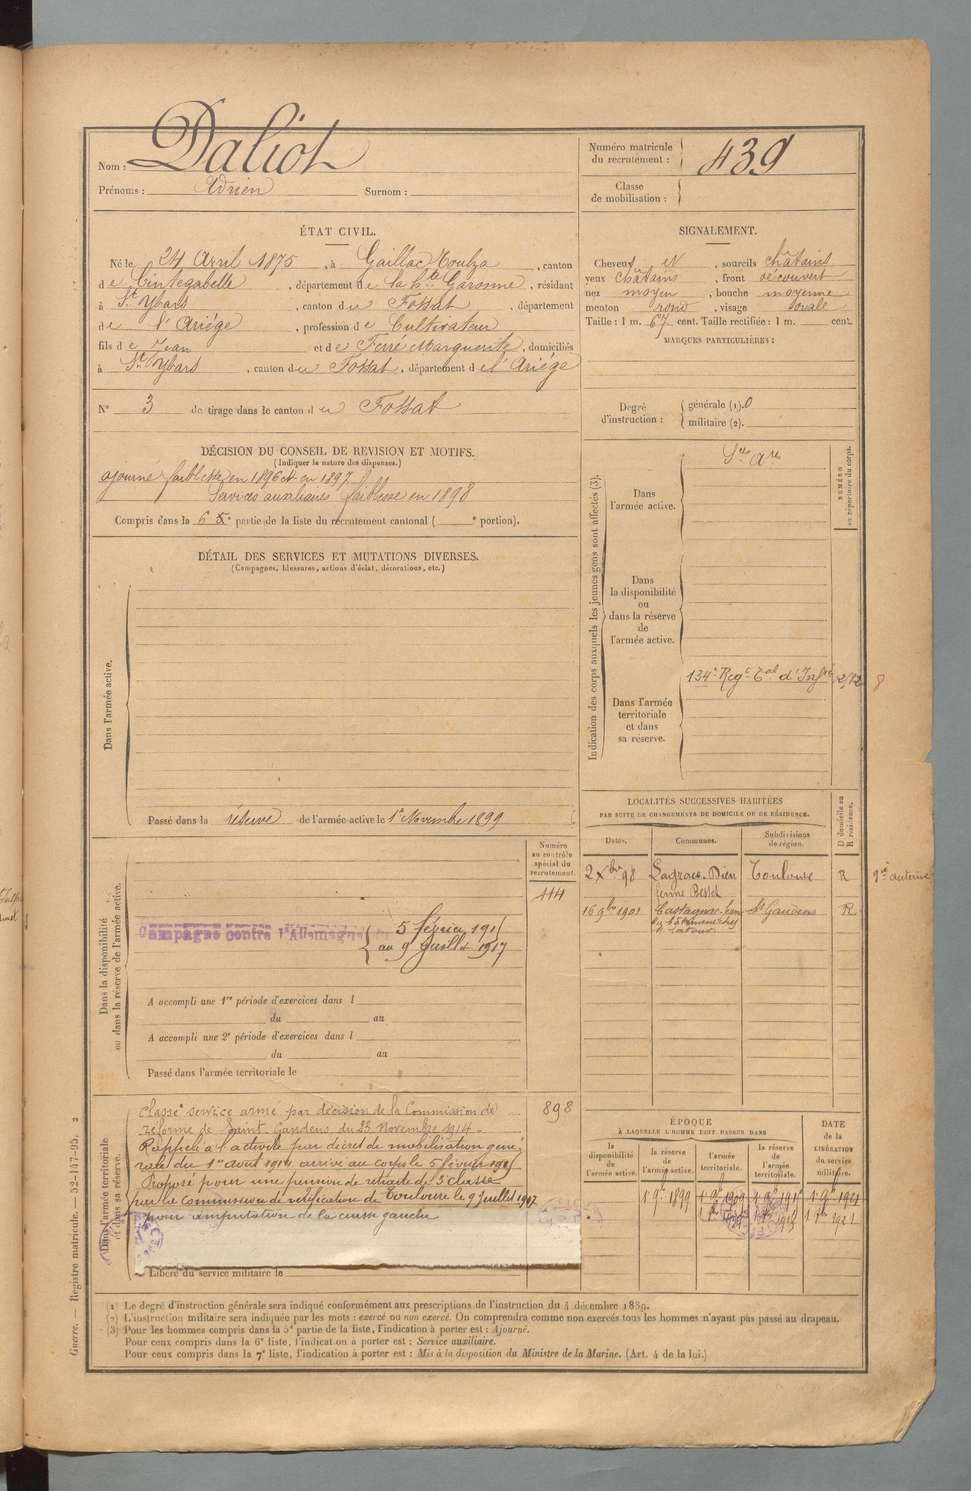 Nom : Daliot
Prénoms : Adrien Surnom :
Numéro matricule du recrutement : 439
Classe de mobilisation :
ÉTAT CIVIL.
Né le 24 Avril 1875, à Gaillac Toulza, canton
de Cintegabelle, département de la Hte Garonne, résidant
à St Ybars, canton du Fossat, département
de l'Ariége, profession de Cultivateur
fils de Jean et de Ferré Marguerite, domiciliés
à St Ybars, canton du Fossat, département de l'Ariége
N° 3 de tirage dans le canton du Fossat
SIGNALEMENT.
Cheveux et, sourcils châtains
yeux châtains, front découvert
nez moyen, bouche moyenne
menton rond, visage ovale
Taille : 1 m. 67 cent. Taille rectifiée : 1 m. cent.
MARQUES PARTICULIÈRES :
Degré d'instruction : générale (1). 0
militaire (2).
DÉCISION DU CONSEIL DE REVISION ET MOTIFS.
(Indiquer la nature des dispenses.)
ajourné faiblesse en 1896 et en 1897
Services auxiliaires faiblesse en 1898
Compris dans la 6e partie de la liste du recrutement cantonal ( e portion).
DÉTAIL DES SERVICES ET MUTATIONS DIVERSES.
(Campagnes, blessures, actions d'éclat, décorations, etc.)
Dans l'armée active.
Passé dans la réserve de l'armée active le 1er Novembre 1899
Indication des corps auxquels les jeunes gens sont affectés (3).
NUMÉRO au répertoire du corps.
Dans l'armée active.
Ses Ares
Dans la disponibilité ou dans la réserve de l'armée active.
Dans l'armée territoriale et dans sa réserve.
134e Regt Tal d'Infie
8
LOCALITÉS SUCCESSIVES HABITÉES
PAR SUITE DE CHANGEMENTS DE DOMICILE OU DE RÉSIDENCE.
Dates. Communes. Subdivisions de région. D domicile ou R résidence.
2 Xbre 98 Lagrace-Dieu Toulouse R
16 9bre 1901 Castagnac St Gaudens R
Dans la disponibilité ou dans la réserve de l'armée active.
Numéro au contrôle spécial du recrutement.
114
Campagne contre l'Allemagne
5 février 191
au 9 Juillet 1917
A accompli une 1re période d'exercices dans l
du au
A accompli une 2e période d'exercices dans l
du au
Passé dans l'armée territoriale le
Dans l'armée territoriale et dans sa réserve.
898
Classé service armé par décision de la Commission de
réforme de Saint-Gaudens du 23 Novembre 1914 -
Rappelé à l'activité par décret de mobilisation géné
rale du 1er Août 1914 arrivé au corps le 5 février 191
Proposé pour une pension de retraite de 3e classe
par la commission de vérification de Toulouse le 9 Juillet 1917
pour amputation de la cuisse gauche
Libéré du service militaire le
ÉPOQUE
À LAQUELLE L'HOMME DOIT PASSER DANS
la disponibilité de l'armée active. la réserve de l'armée active. l'armée territoriale. la réserve de l'armée territoriale.
DATE de la LIBÉRATION du service militaire.
1 9e 1899
(1) Le degré d'instruction générale sera indiqué conformément aux prescriptions de l'instruction du 4 décembre 1889.
(2) L'instruction militaire sera indiquée par les mots : exercé ou non exercé. On comprendra comme non exercés tous les hommes n'ayant pas passé au drapeau.
(3) Pour les hommes compris dans la 5e partie de la liste, l'indication à porter est : Ajourné.
Pour ceux compris dans la 6e liste, l'indication à porter est : Service auxiliaire.
Pour ceux compris dans la 7e liste, l'indication à porter est : Mis à la disposition du Ministre de la Marine. (Art. 4 de la loi.)
Guerre. — Registre matricule. — 52-147-95. 2